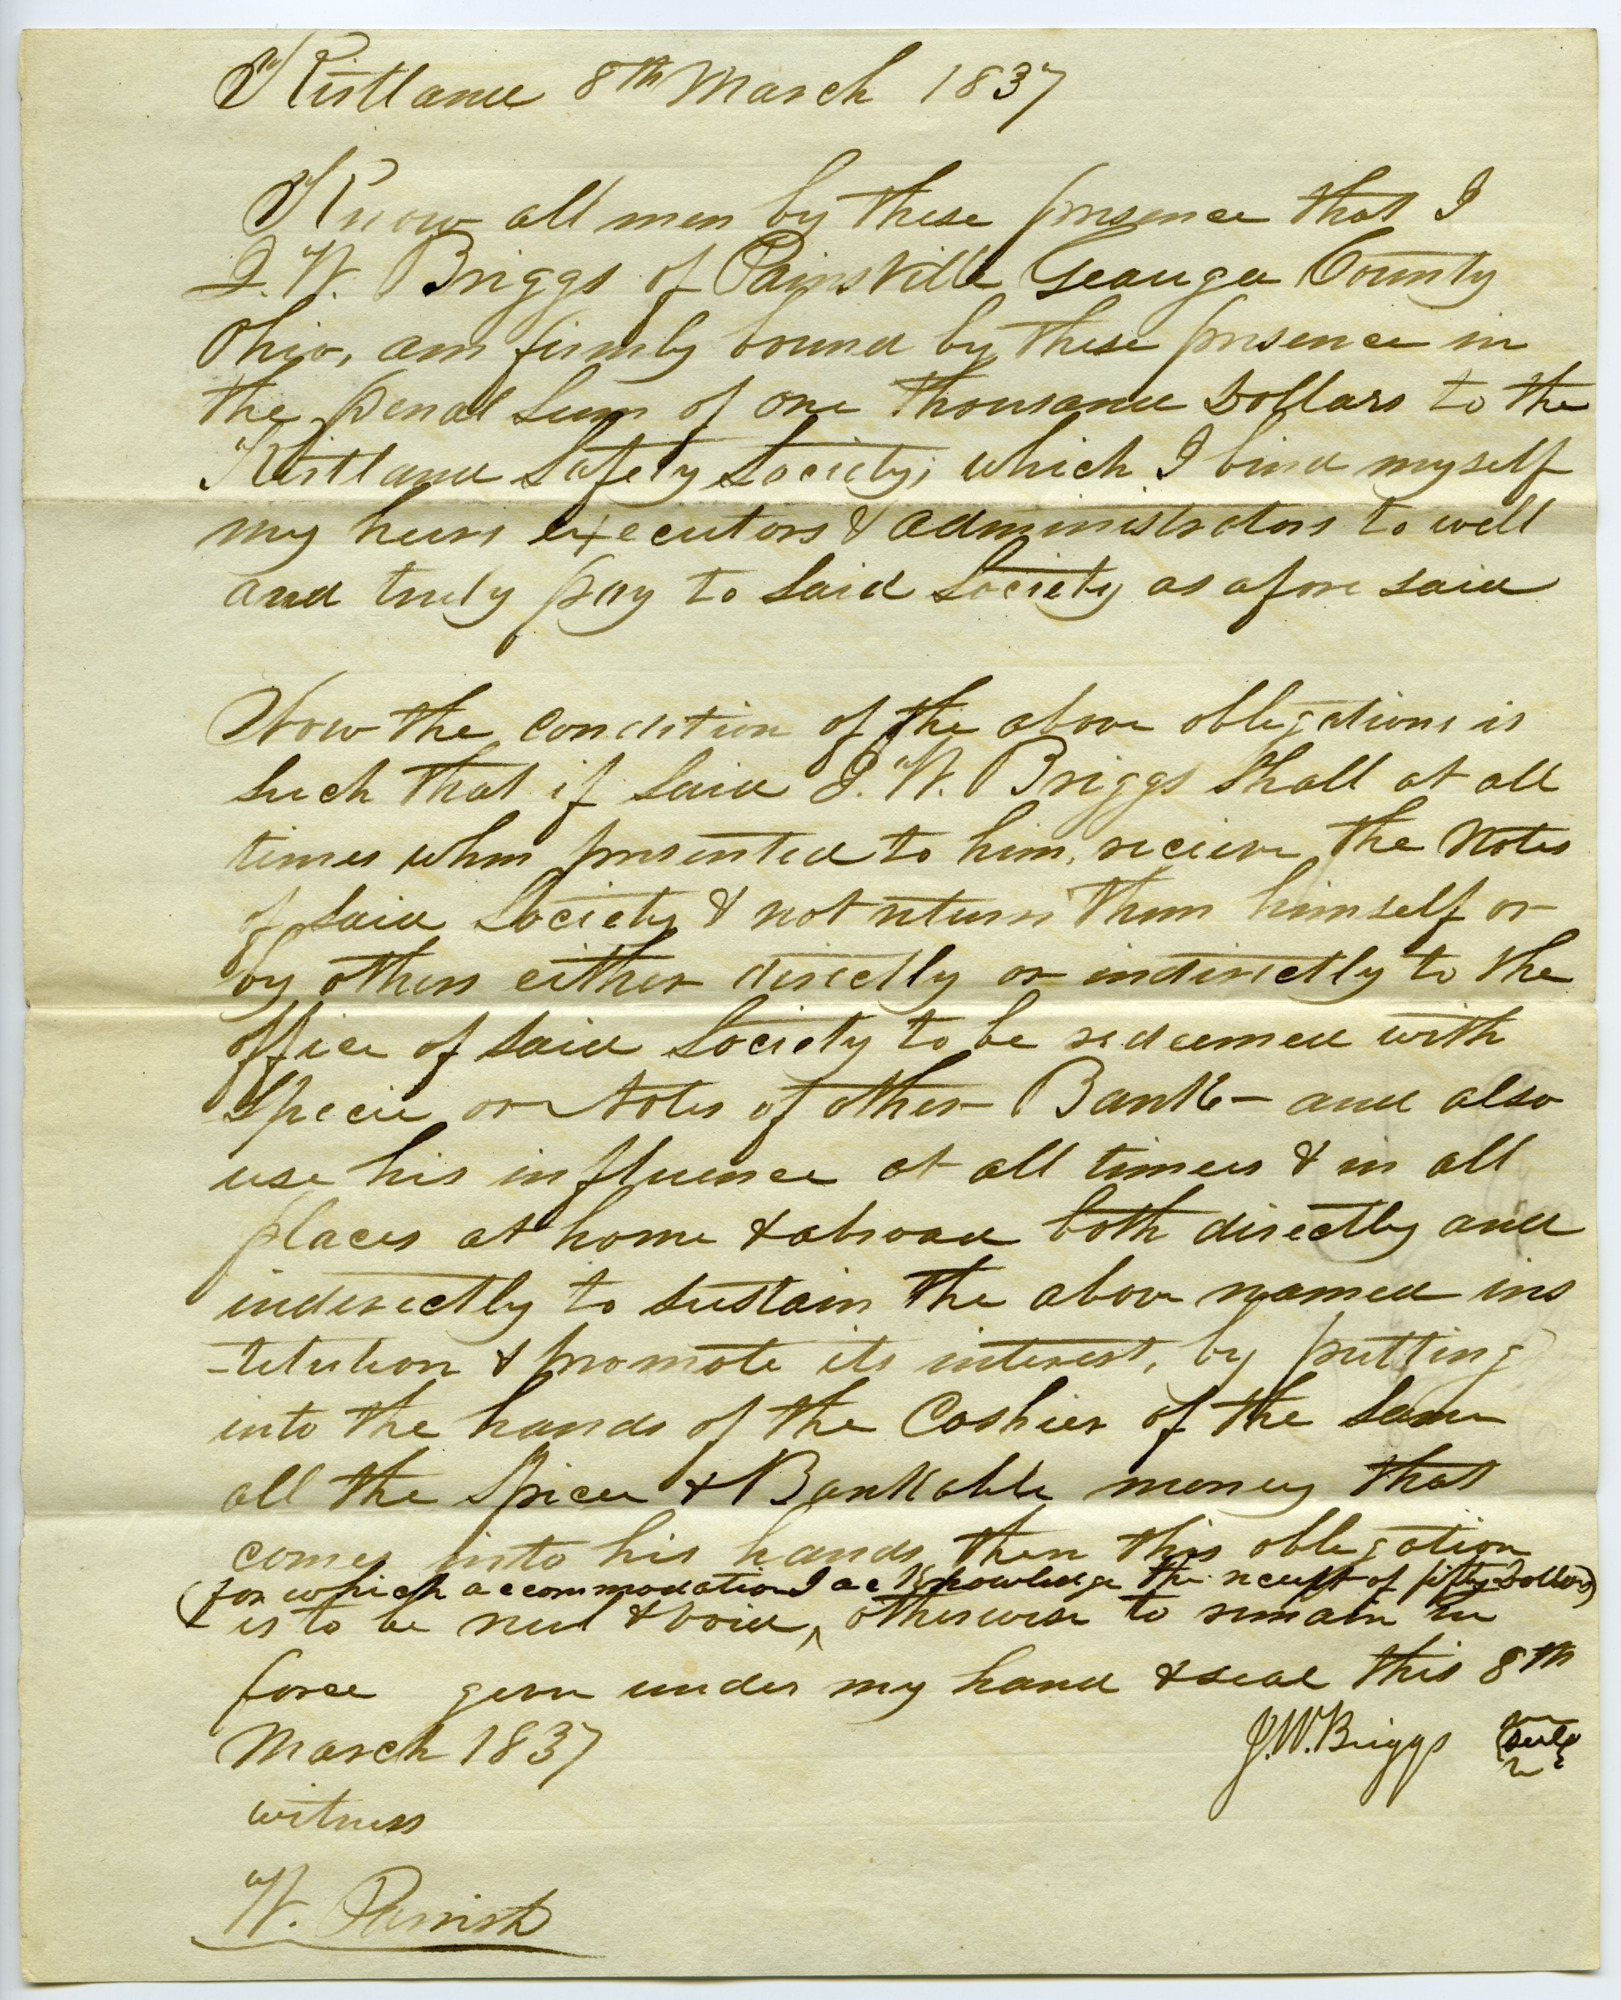 Kirtland 8th March 1837
Know all men by these presence that I
J. W. Briggs of Painsville Geauga County
Ohio, am firmly bound by these presence in
the penal Sum of one thousand Dollars to the
Kirtland Safety Society; which I bind myself
my heirs executors & administrators to well
and truly pay to Said Society as afore said
Now the condition of the above obligations is
Such that if Said J. W. Briggs Shall at all
times when presented to him, recieve the Notes
of Said Society & not return them himself or
by others either directly or indirectly to the
office of Said Society to be redeemed with
Specie or Notes of other Banks — and also
use his influence at all times & in all
places at home & abroad both directly and
inderectly to Sustain the above named ins
-titution & promote its interest, by putting
into the hands of the Cashier of the Same
all the Spicee & Bankable money that
comes into his hands then this obligation
(for which accommodation I acKnowledge the receipt of fifty Dollars)
is to be nul & void, ^ otherwise to remain in
force given under my hand & seal this 8th
March 1837
J. W. Briggs seal
witness
W. Parrish